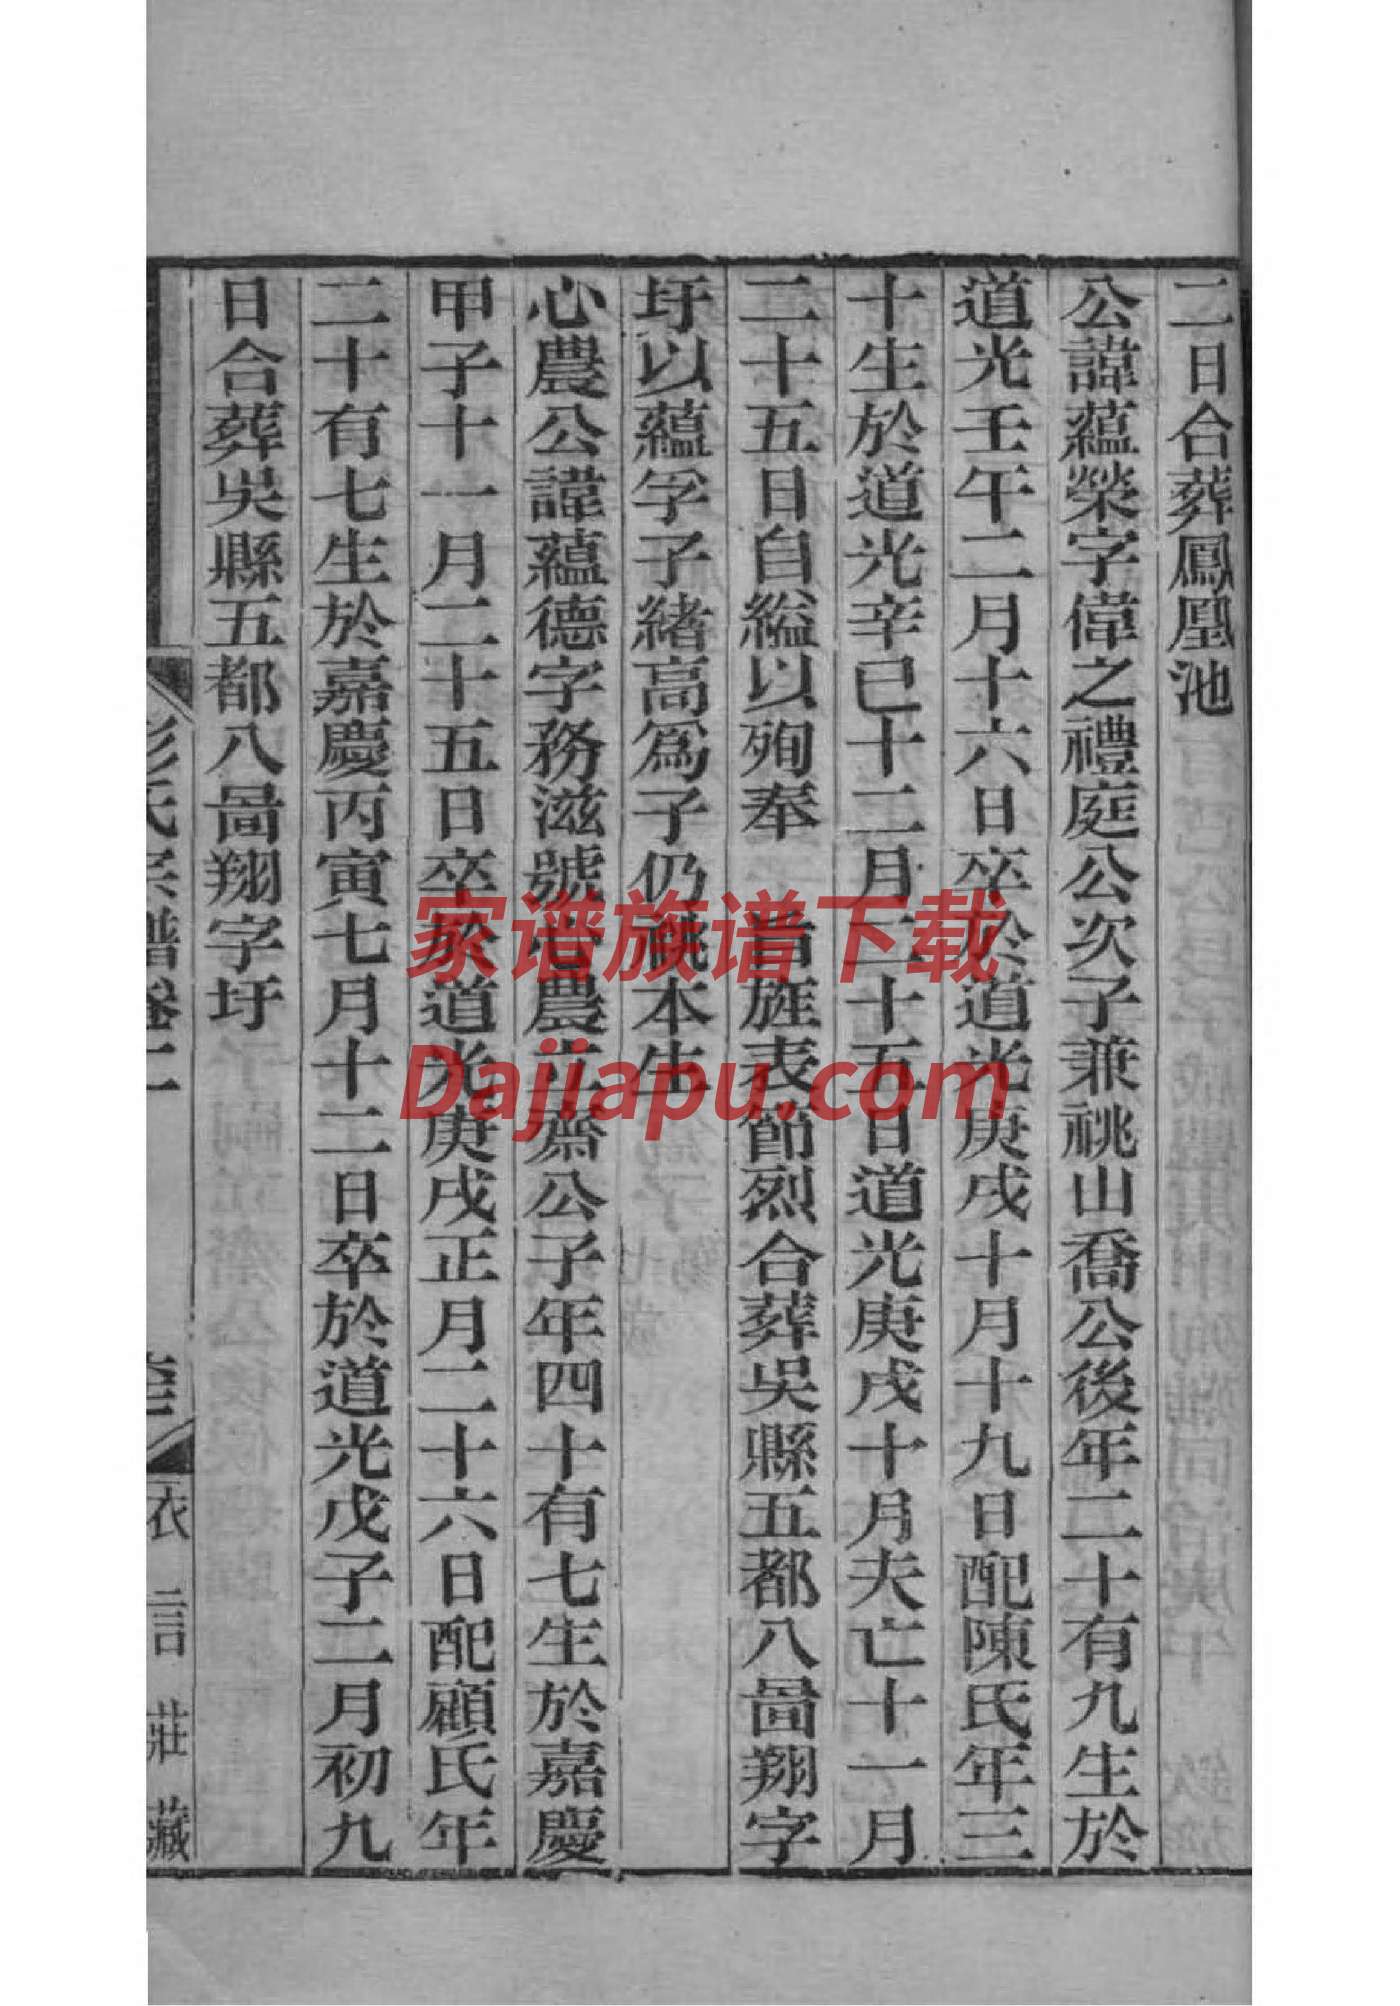 二日合葬鳳凰池
公諱蘊榮字偉之禮庭公次子兼祧山喬公後年二十有九生於
道光壬午二月十六日卒於道光庚戌十月十九日配陳氏年三
十生於道光辛巳十二月二十五日道光庚戌十月夫亡十一月
二十五日自縊以殉奉
旨旌表節烈合葬吳縣五都八啚翔字
圩以蘊孚子緒高爲子仍祧本生
心農公諱蘊德字務滋號心農正齋公子年四十有七生於嘉慶
甲子十一月二十五日卒於道光庚戌正月二十六日配顧氏年
二十有七生於嘉慶丙寅七月十二日卒於道光戊子二月初九
日合葬吳縣五都八啚翔字圩
彭氏宗譜卷二
衣言莊藏
家谱族谱下载
Dajiapu.com